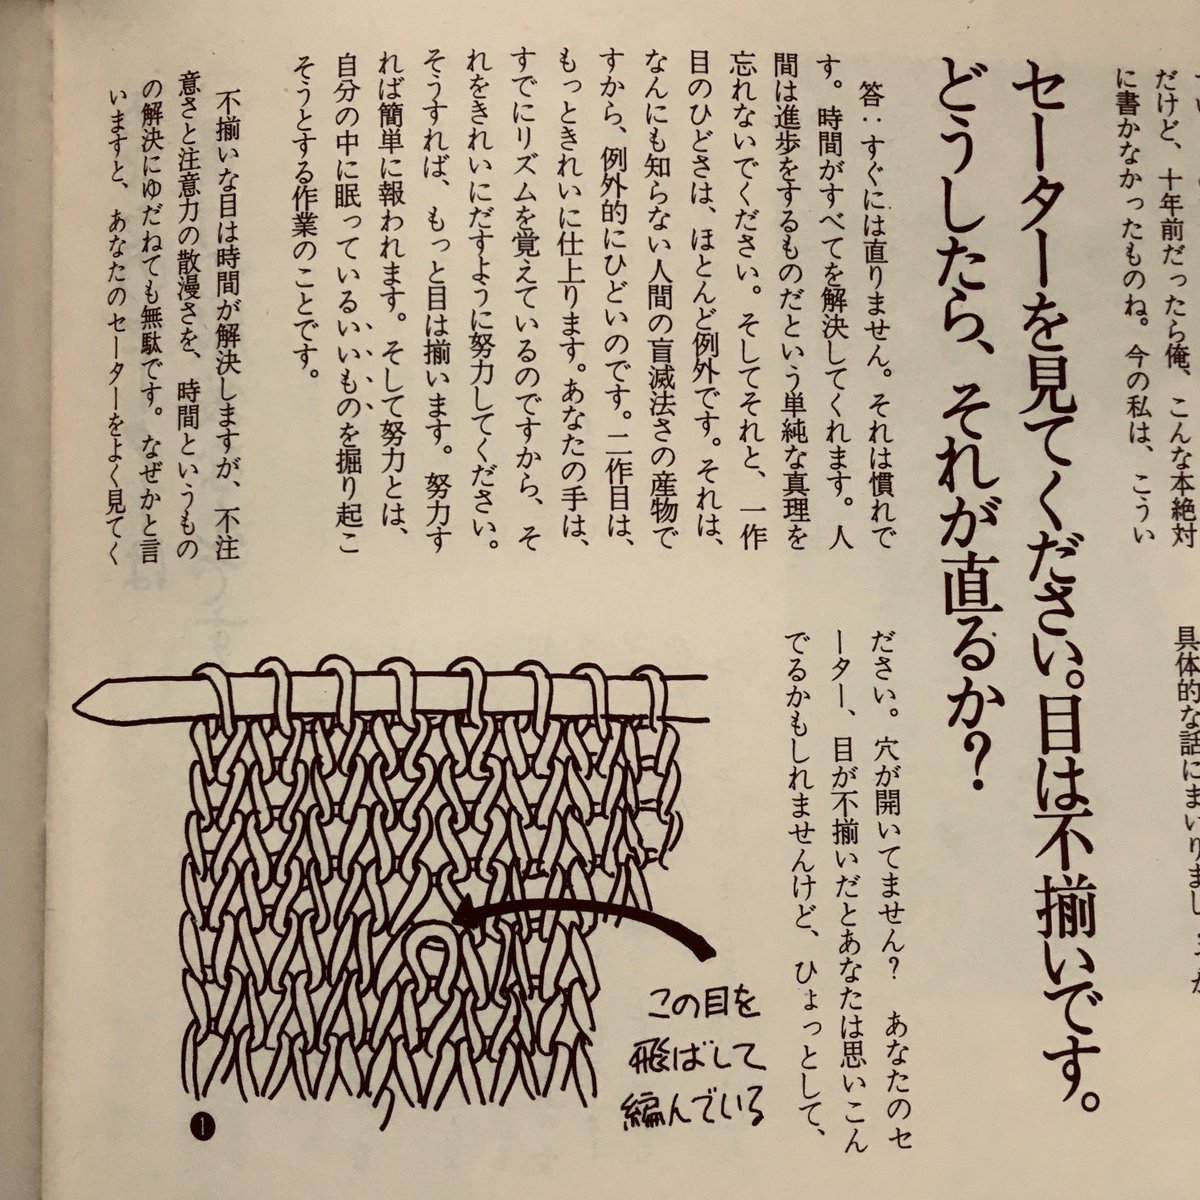 だけど、十年前だったら俺、こんな本絶対
に書かなかったものね。今の私は、こうい
セーターを見てください。目は不揃いです。
どうしたら、それが直るか？
答：すぐには直りません。それは慣れで
す。時間がすべてを解決してくれます。人
間は進歩をするものだという単純な真理を
忘れないでください。そしてそれと、一作
目のひどさは、ほとんど例外です。それは、
なんにも知らない人間の盲滅法さの産物で
すから、例外的にひどいのです。二作目は、
もっときれいに仕上ります。あなたの手は、
すでにリズムを覚えているのですから、そ
れをきれいにだすように努力してください。
そうすれば、もっと目は揃います。努力す
れば簡単に報われます。そして努力とは、
自分の中に眠っているいいものを掘り起こ
そうとする作業のことです。
不揃いな目は時間が解決しますが、不注
意さと注意力の散漫さを、時間というもの
の解決にゆだねても無駄です。なぜかと言
いますと、あなたのセーターをよく見てく
具体的な話にまいりまし
ださい。穴が開いてません？　あなたのセ
ーター、目が不揃いだとあなたは思いこん
でるかもしれませんけど、ひょっとして、
この目を
飛ばして
編んでいる
❶